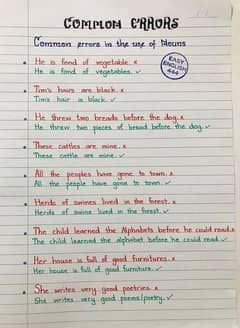 COMMON ERRORS
Common errors in the use of Nouns
EASY
ENGLISH
444
• He is fond of vegetable. x
He is fond of vegetables. ✓
• Tim's hairs are black. x
Tim's hair is black. ✓
• He threw two breads before the dog. x
He threw two pieces of bread before the dog. ✓
• These cattles are mine. x
These cattle are mine. ✓
• All the peoples have gone to town. x
All the people have gone to town. ✓
• Herds of swines lived in the forest. x
Herds of swine lived in the forest. ✓
• The child learned the Alphabets before he could read. x
The child learned the alphabet before he could read. ✓
• Her house is full of good furnitures. x
Her house is full of good furniture. ✓
• She writes very good poetries. x
She writes very good poems/poetry. ✓